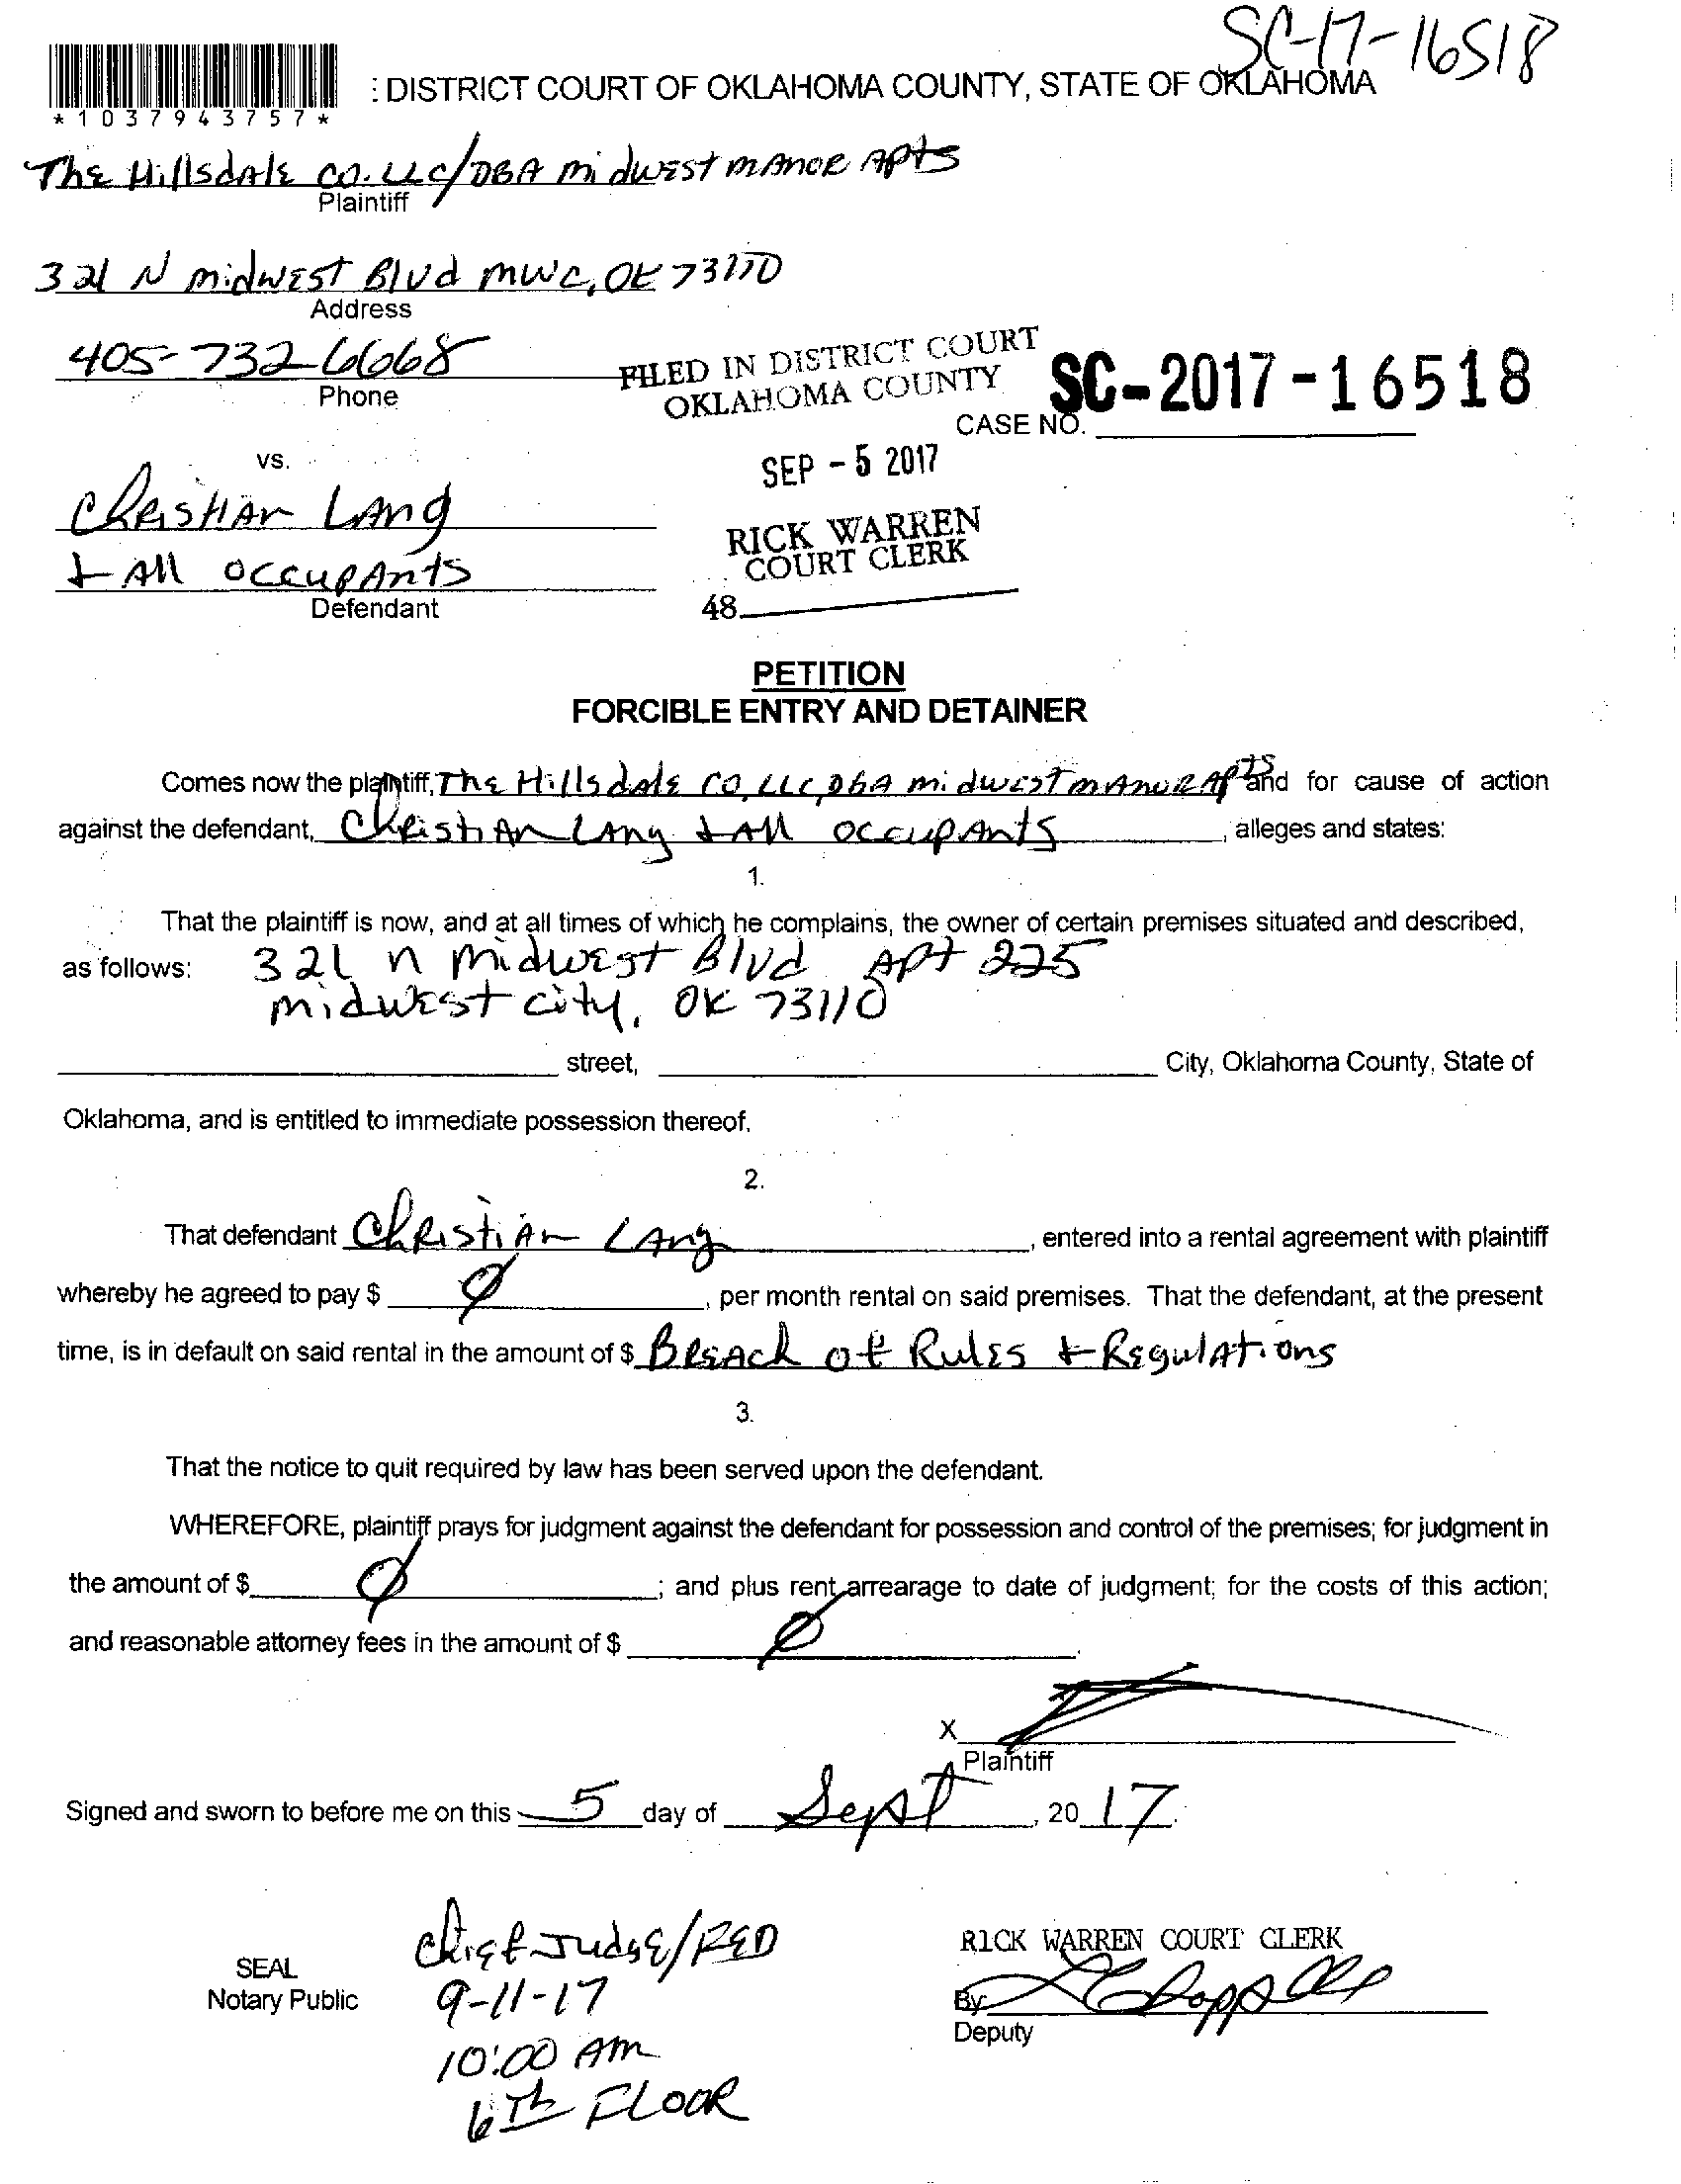 SC-17-16518
: DISTRICT COURT OF OKLAHOMA COUNTY, STATE OF OKLAHOMA
*1037943757*
The Hillsdale CO. LLC/DBA midwest manor Apts
Plaintiff
321 N midwest Blvd MWC, OK 73110
Address
405-732-6668
Phone
FILED IN DISTRICT COURT
OKLAHOMA COUNTY
SC-2017-16518
CASE NO.
SEP - 5 2017
vs.
Christian Lang
RICK WARREN
COURT CLERK
+ All occupants
Defendant
48
PETITION
FORCIBLE ENTRY AND DETAINER
Comes now the plaintiff, The Hillsdale CO, LLC, DBA midwest manor Apts and for cause of action
against the defendant, Christian Lang + All occupants, alleges and states:
1.
That the plaintiff is now, and at all times of which he complains, the owner of certain premises situated and described,
as follows: 321 n midwest Blvd Apt 225
midwest city, OK 73110
street, City, Oklahoma County, State of
Oklahoma, and is entitled to immediate possession thereof.
2.
That defendant Christian Lang, entered into a rental agreement with plaintiff
whereby he agreed to pay $ Ø, per month rental on said premises. That the defendant, at the present
time, is in default on said rental in the amount of $ Breach of Rules + Regulations
3.
That the notice to quit required by law has been served upon the defendant.
WHEREFORE, plaintiff prays for judgment against the defendant for possession and control of the premises; for judgment in
the amount of $ Ø; and plus rent arrearage to date of judgment; for the costs of this action;
and reasonable attorney fees in the amount of $ Ø.
X
Plaintiff
Signed and sworn to before me on this 5 day of Sept, 20 17.
Chief Judge/FED
RICK WARREN COURT CLERK
SEAL
Notary Public
9-11-17
By
Deputy
10:00 AM
6th FLOOR